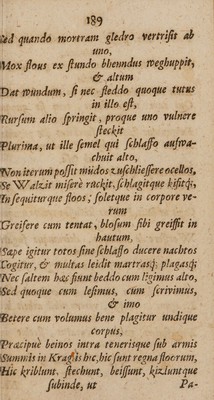 189
Sed quando mortram gledro vertrisit ab
uno,
Mox flous ex stundo bhenndus weghuppit,
& altum
Dat wundum, si nec sleddo quoque tutus
in illo est,
Rursum alio springit, proque uno vulnere
steckit
Plurima, ut ille semel qui schlaffo aufwa-
chuit alto,
Non iterum possit müdos zuschliessere ocellos,
Se Walzit miserè rackit, schlagitque
Insequiturque floos; soletque in corpore ve-
rum
Greifere cum tentat, blosum sibi greiffit in
hautum,
Sape igitur totos sine schlaffo ducere nachtos
Cogitur, & multas leidit martrasq; plagasq;
Nec saltem hæc fiunt beddo cum ligimus alto,
Sed quoque cum lesimus, cum scrivimus,
& imo
Betere cum volumus bene plagitur undique
corpus,
Præcipuè beinos intra tenerisque sub armis
Summis in Kragiis hic, hic sunt regna floorum,
Hic kriblunt, stechunt, beissunt, kizluntque
subinde, ut
Pa-